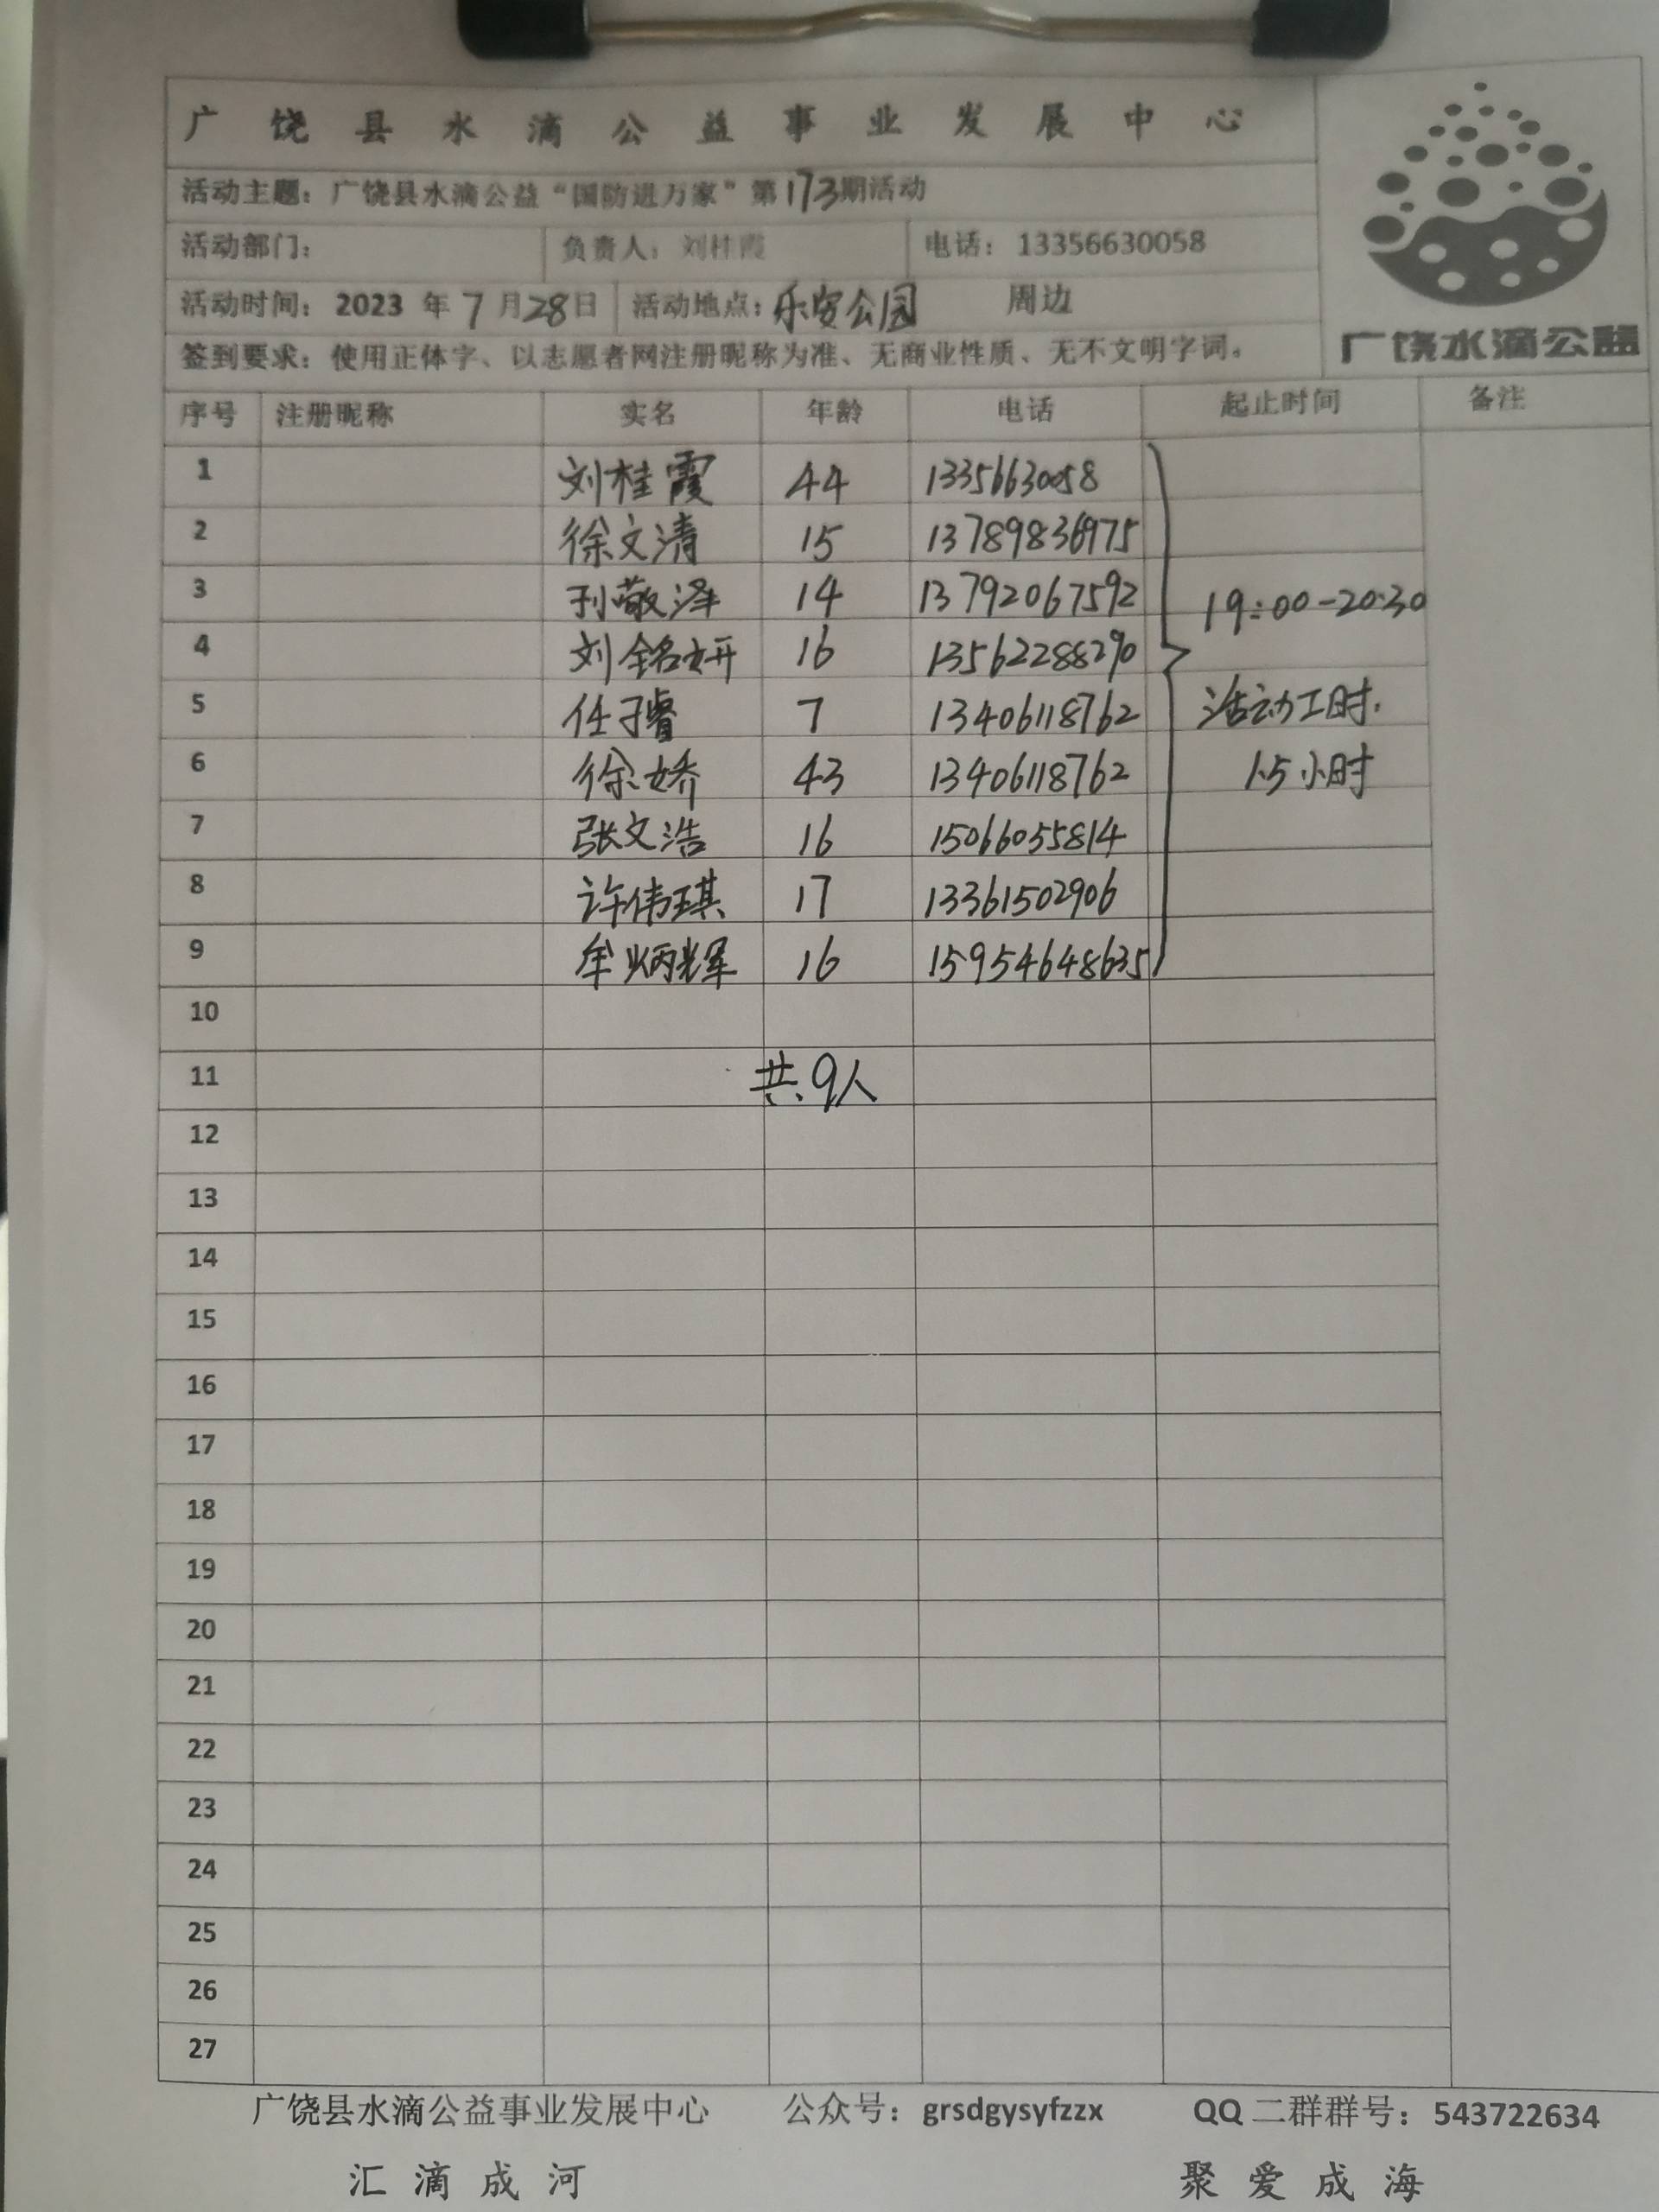 广饶县水滴公益事业发展中心
活动主题：广饶县水滴公益“国防进万家”第173期活动
活动部门： 负责人：刘桂霞 电话：13356630058
活动时间：2023 年 7 月 28 日 活动地点：乐安公园 周边
签到要求：使用正体字、以志愿者网注册昵称为准、无商业性质、无不文明字词。
广饶水滴公益
序号 注册昵称 实名 年龄 电话 起止时间 备注
1 刘桂霞 44 13356630058
2 徐文清 15 13789836975
3 刘敬泽 14 13792067592 19:00-20:30
4 刘铭妍 16 13562288290
5 任子睿 7 13406118762 活动工时.
6 徐娇 43 13406118762 1.5小时
7 张文浩 16 15066055814
8 许伟琪 17 13361502906
9 牟炳辉 16 15954648635
10
11 共9人
12
13
14
15
16
17
18
19
20
21
22
23
24
25
26
27
广饶县水滴公益事业发展中心 公众号：grsdgysyfzzx QQ二群群号：543722634
汇滴成河 聚爱成海